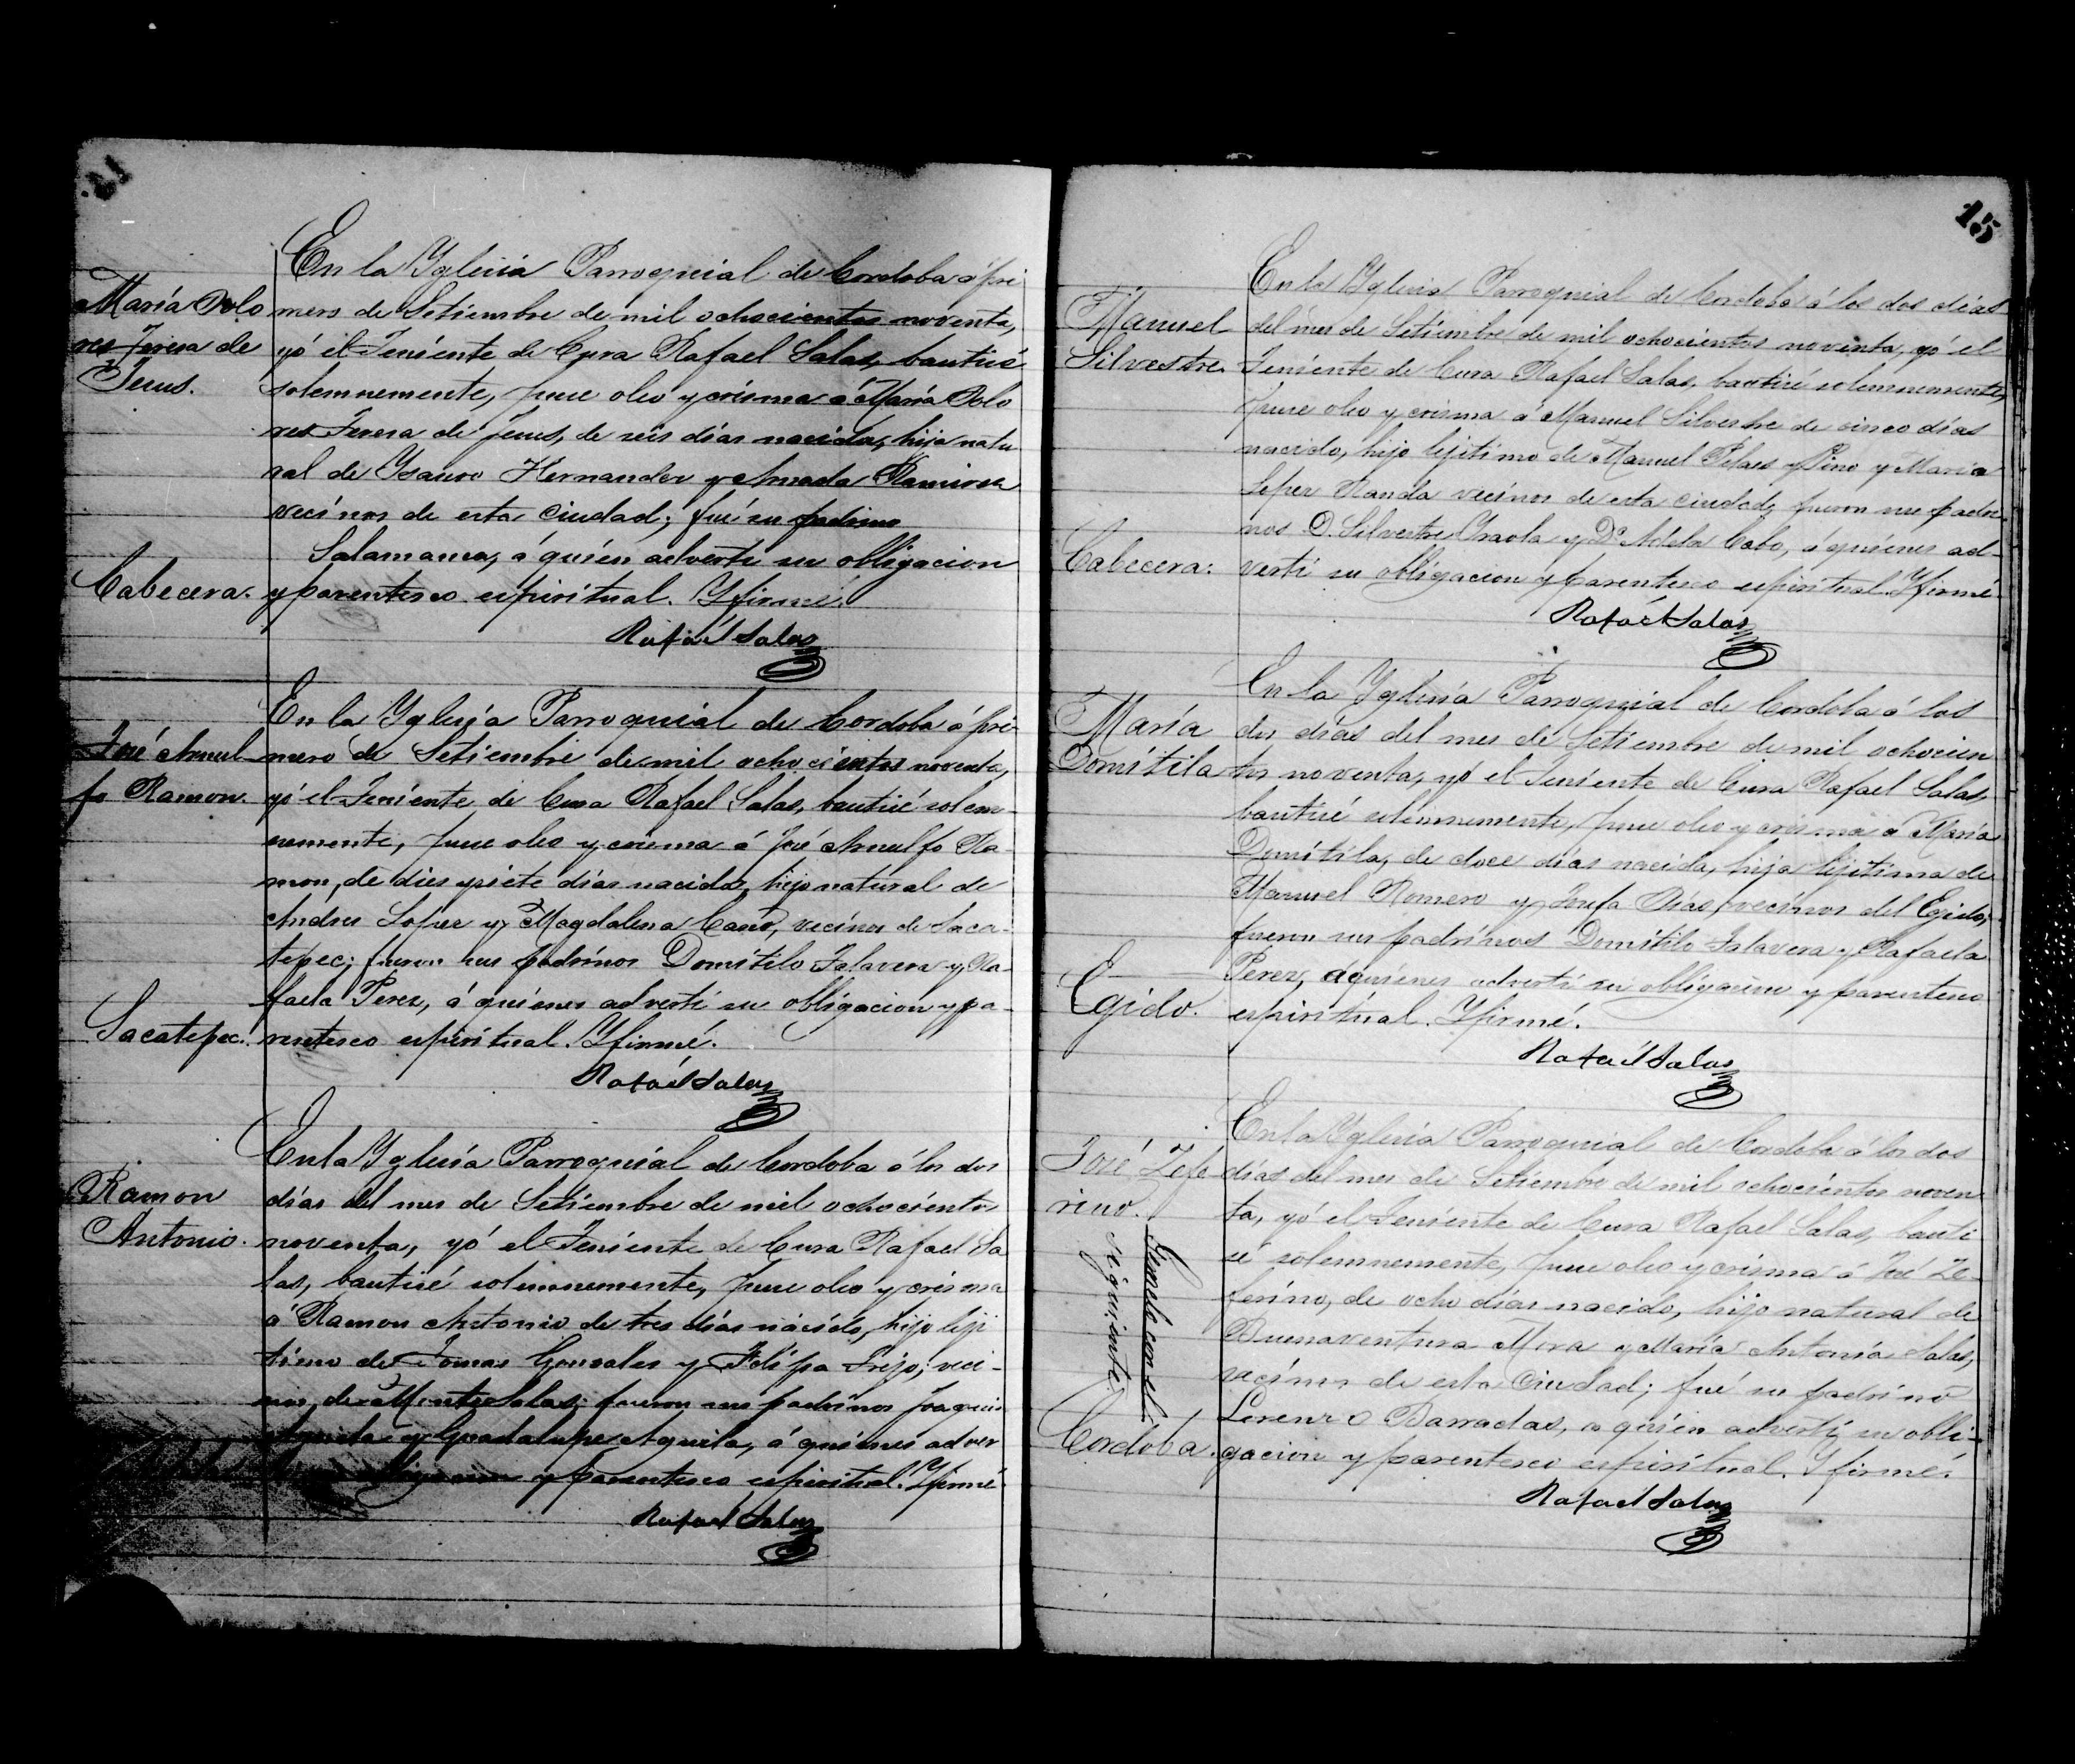 María Dolo
res Teresa de
Jesus.
Cabecera.
En la Yglesia Parroquial de Cordoba á pri
mero de Setiembre de mil ochocientos noventa,
yó el Teniente de Cura Rafael Salas, bauticé
solemnemente, puse oleo y crisma á María Dolo
res Teresa de Jesus, de seis días nacida, hija natu
ral de Ysauro Hernandez y Amada Ramires
vecinos de esta Ciudad; fué su padrino
Salamanca, á quién advertí su obligacion
y parentesco espiritual. Y firmé.
Rafaél Salas
José Arnul
fo Ramon.
Sacatepec.
En la Yglesia Parroquial de Cordoba á pri
mero de Setiembre de mil ochocientos noventa,
yó el Teniente de Cura Rafael Salas, bauticé solem-
nemente, puse oleo y crisma á José Arnulfo Ra-
mon, de dies y siete días nacido, hijo natural de
Andres Lopez y Magdalena Cano, vecinos de Saca-
tepec; fueron sus padrinos Domitilo Talavera y Ra-
faela Perez, á quiénes advertí su obligacion y pa-
rentesco espiritual. Y firmé.
Rafaél Salas
Ramon
Antonio.
En la Yglesia Parroquial de Cordoba á los dos
días del mes de Setiembre de mil ochocientos
noventa, yó el Teniente de Cura Rafael Sa
las, bauticé solemnemente, puse oleo y crisma
á Ramon Antonio de tres días nacido, hijo lejí
timo de Tomas Gonzales y Felipa Trejo; veci-
nos de Monte Salas; fueron sus padrinos Joaquin
y Guadalupe Aguila, á quiénes adver
obligacion y parentesco espiritual. Y firmé.
Rafael Salas
15
Manuel
Silvestre.
Cabecera.
En la Yglesia Parroquial de Cordoba á los dos días
del mes de Setiembre de mil ochocientos noventa, yó el
Teniente de Cura Rafael Salas, bauticé solemnemente,
puse oleo y crisma á Manuel Silvestre de cinco días
nacido, hijo lejitimo de Manuel Pelaes y Pino y María
Lopez Randa vecinos de esta Ciudad, fueron sus padri-
nos D. Silvestre Yraola y Dª Adela Cabo, á quiénes ad-
vertí su obligacion y parentesco espiritual. Y firmé.
Rafaél Salas
María
Domítila
Egido.
En la Yglesia Parroquial de Cordoba á los
dos días del mes de Setiembre de mil ochocien
tos noventa, yó el Teniente de Cura Rafael Salas,
bauticé solemnemente, puse oleo y crisma á María
Domítila, de doce días nacida, hija lejitima de
Manuel Romero y Josefa Días, vecinos del Egido;
fueron sus padrinos Domitilo Talavera y Rafaela
Perez, á quiénes advertí su obligacion y parentesco
espiritual. Y firmé.
Rafaél Salas
José Zefe
rino.
Gemelo con el
siguiente.
Cordoba.
En la Yglesia Parroquial de Cordoba á los dos
días del mes de Setiembre de mil ochocientos noven
ta, yó el Teniente de Cura Rafael Salas, bauti
cé solemnemente, puse oleo y crisma á José Ze-
ferino, de ocho días nacido, hijo natural de
Buenaventura Mora y María Antonia Salas,
vecinos de esta Ciudad; fué su padrino
Lorenzo Barradas, á quién advertí su obli-
gacion y parentesco espiritual. Y firmé.
Rafael Salas